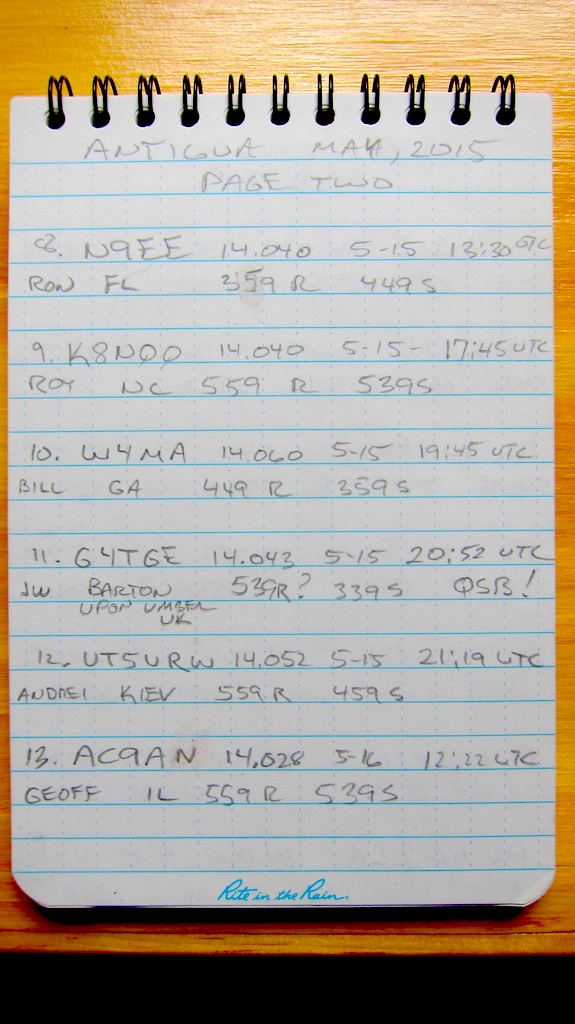 ANTIGUA MAY, 2015
PAGE TWO
8. N9EE 14.040 5-15 13:30 UTC
RON FL 359 R 449 S
9. K8NQQ 14.040 5-15- 17:45 UTC
ROY NC 559 R 539 S
10. W4MA 14.060 5-15 19:45 UTC
BILL GA 449 R 359 S
11. G4TGE 14.043 5-15 20:52 UTC
BARTON 539 R? 339 S QSB!
UPON UMBER
UK
12. UT5URW 14.052 5-15 21:19 UTC
ANDREI KIEV 559 R 459 S
13. AC9AN 14.028 5-16 12:22 UTC
GEOFF IL 559 R 539 S
Rite in the Rain.